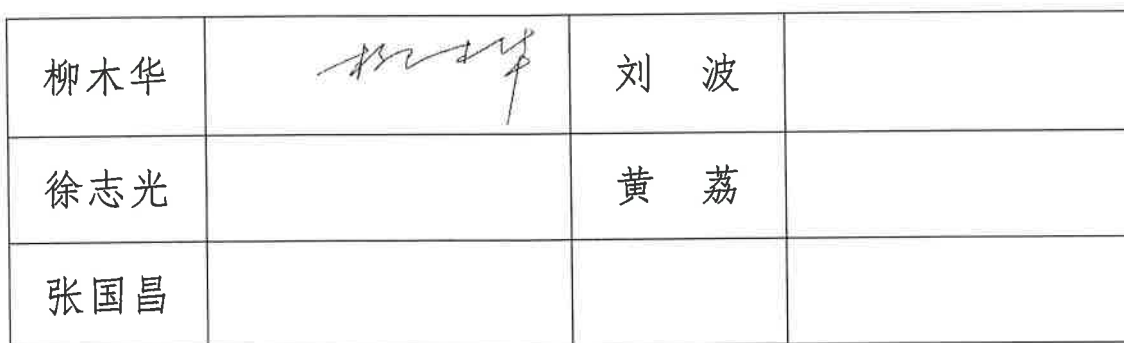 柳木华 柳木华 刘 波
徐志光 黄 荔
张国昌